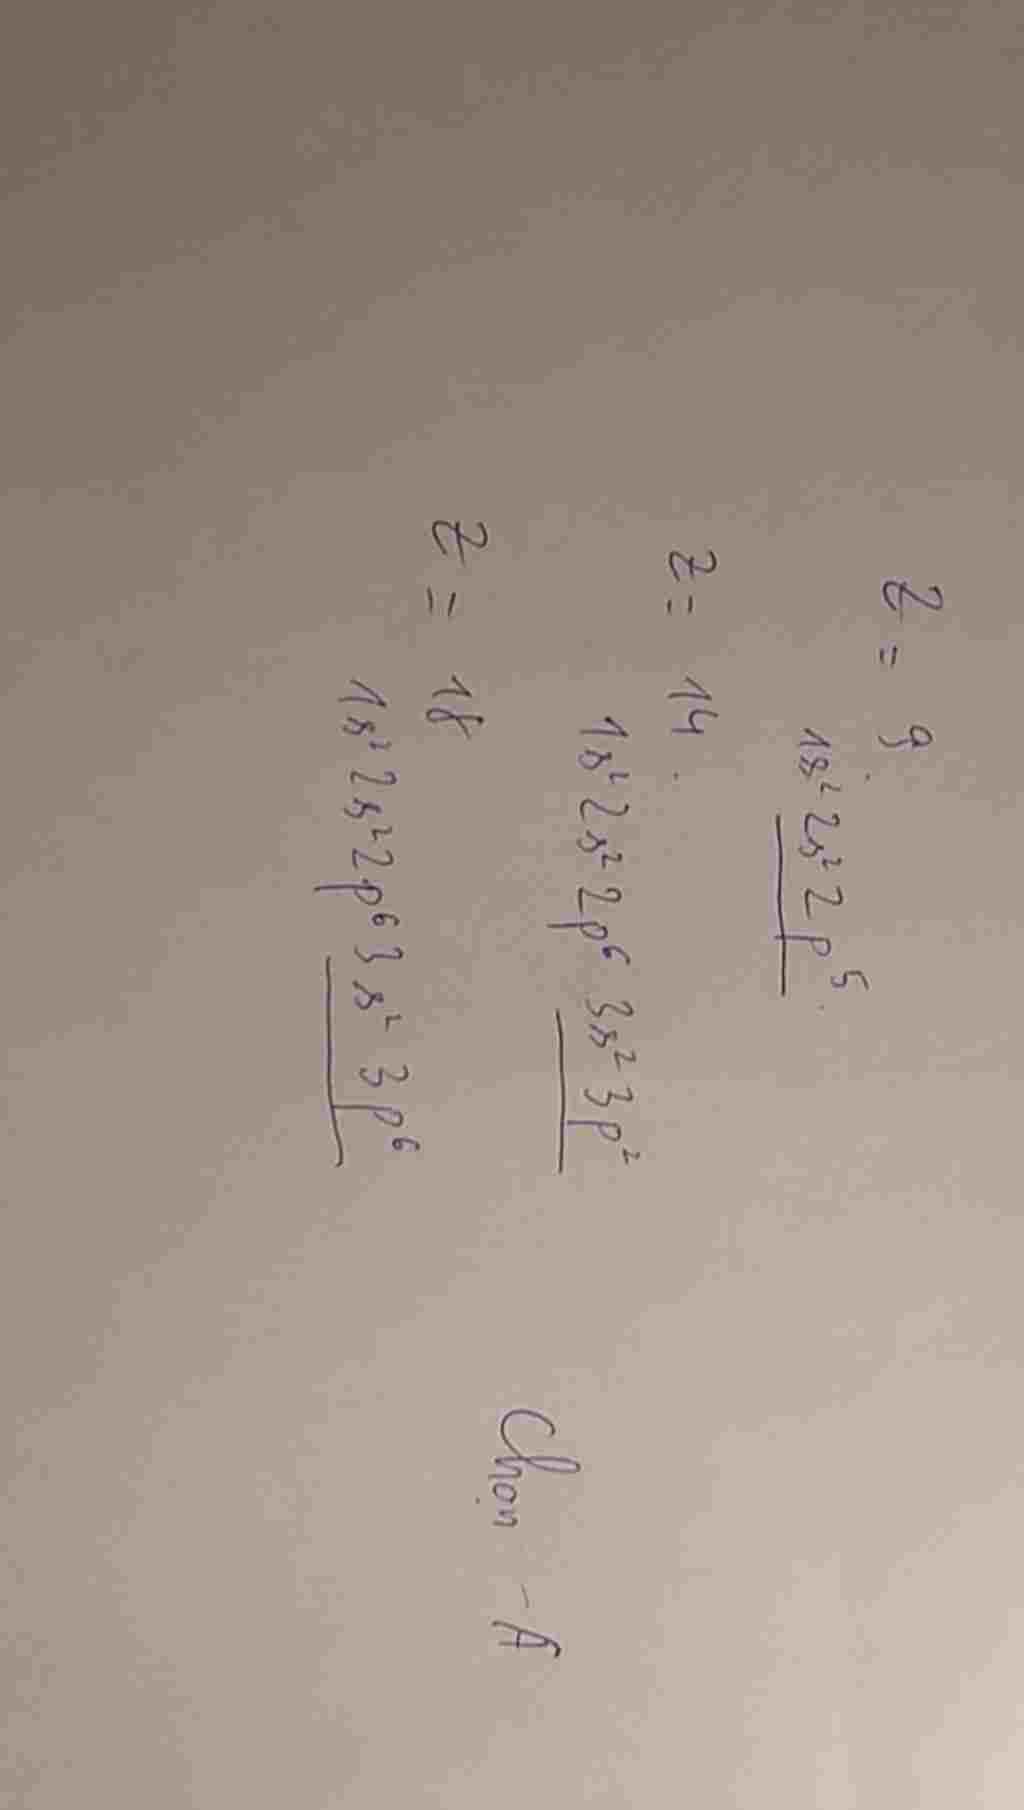 Z = 9.
1s² 2s² 2p⁵.
Z = 14.
1s² 2s² 2p⁶ 3s² 3p²
Z = 18
1s² 2s² 2p⁶ 3s² 3p⁶
Chọn - A